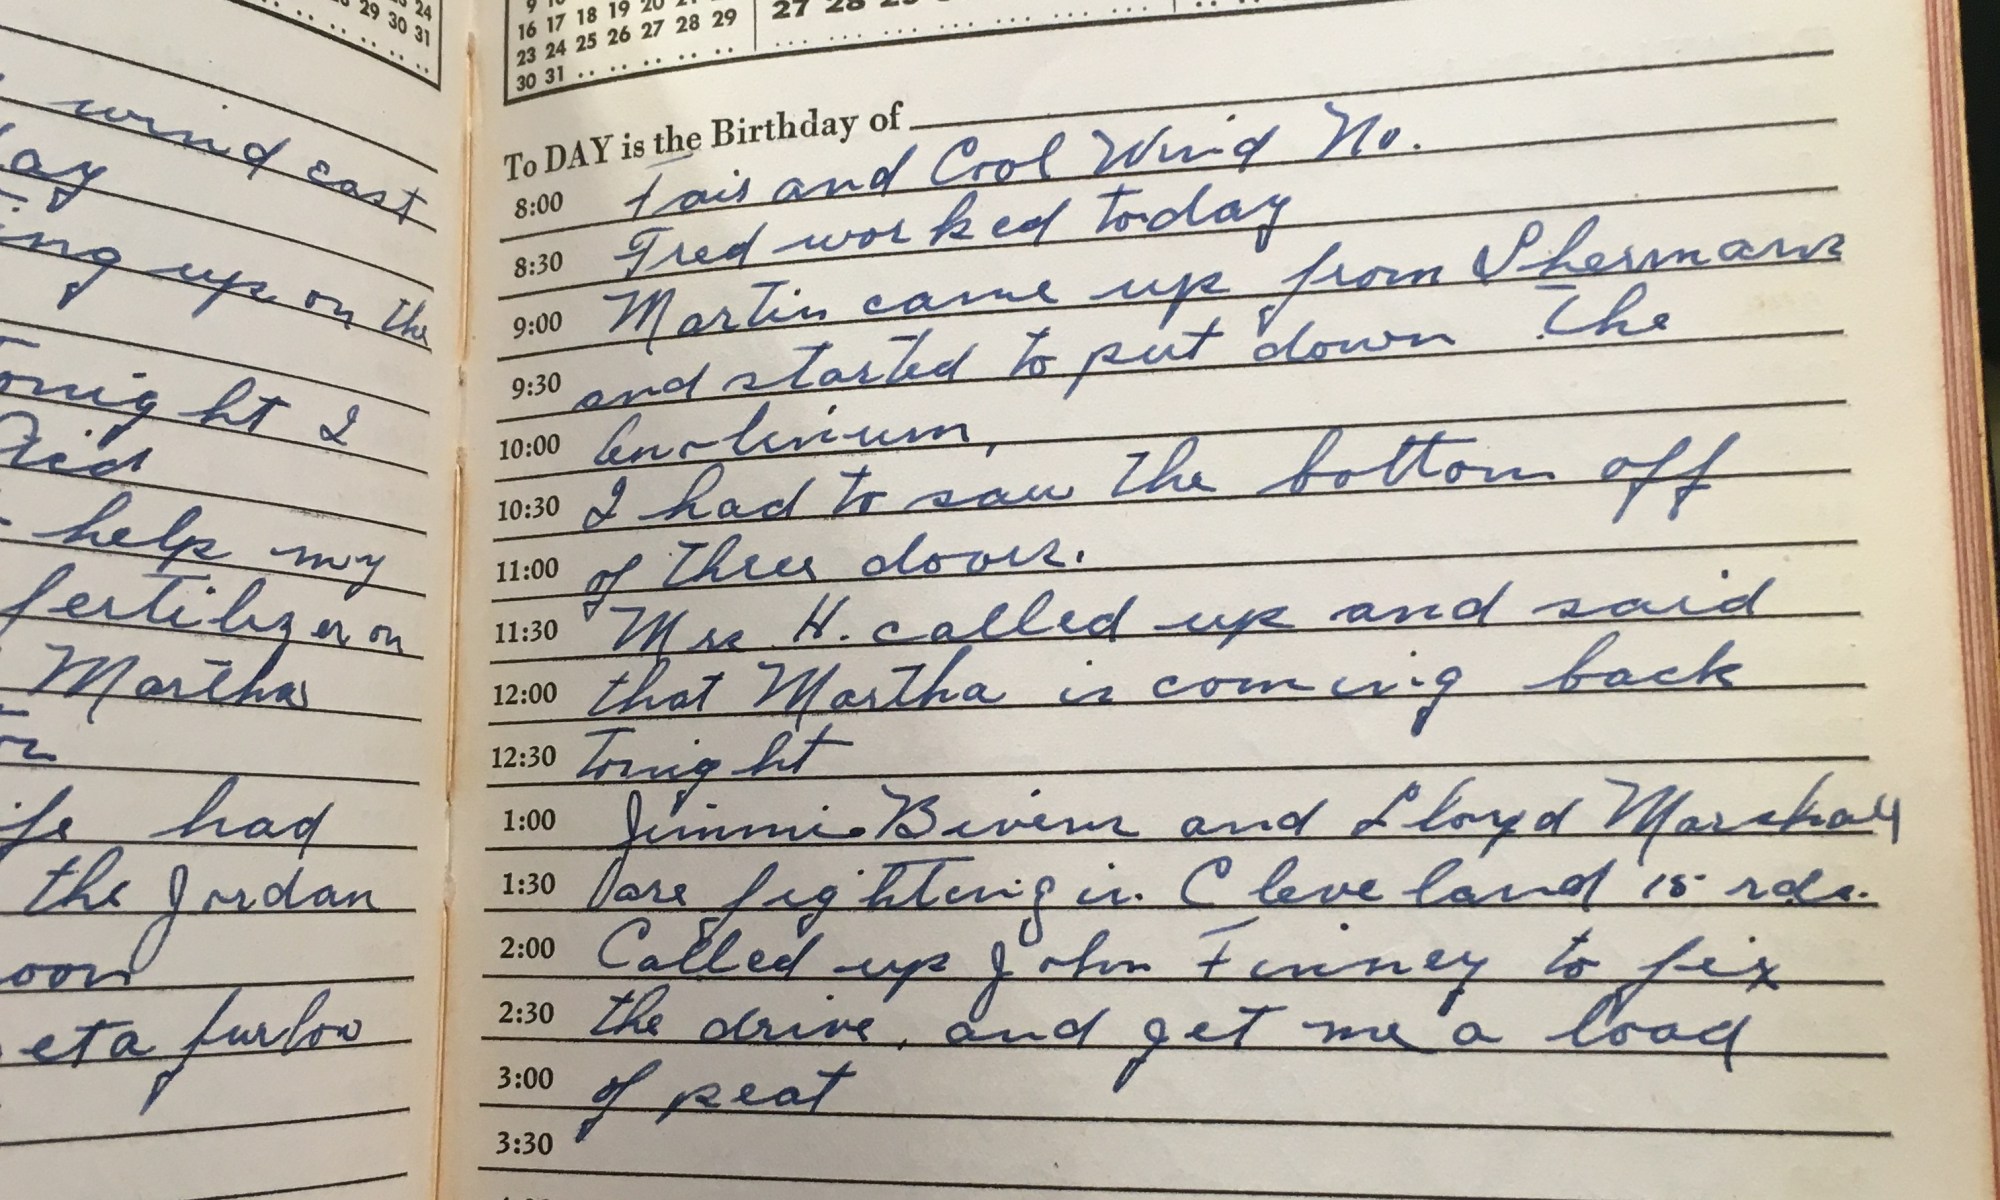 24
29 30 31
wind east
ay
ing up on the
Tonight I
Fred
help my
fertilizer on
Marthas
ife had
the Jordan
oon
eta furlow
9
16 17 18 19 20
23 24 25 26 27 28 29
30 31
27 28
To DAY is the Birthday of
8:00 Fair and Cool Wind No.
8:30 Fred worked today
9:00 Martin came up from Shermans
9:30 and started to put down the
10:00 lenolinium,
10:30 I had to saw the bottom off
11:00 of three doors.
11:30 Mrs H. called up and said
12:00 that Martha is coming back
12:30 Tonight
1:00 Jimmie Bivens and Lloyd Marshall
1:30 are fighting in Cleveland 15 rds.
2:00 Called up John Finney to fix
2:30 the drive, and get me a load
3:00 of peat
3:30